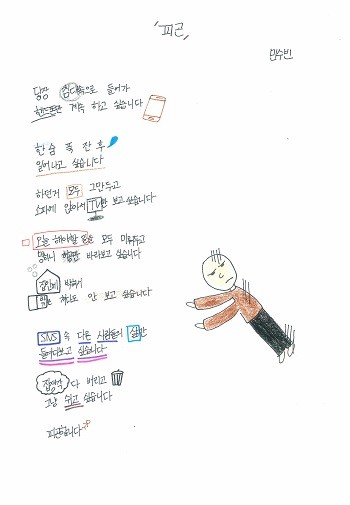 '피곤'
민수빈
당장 침대속으로 들어가
핸드폰만 계속 하고 싶습니다
한숨 푹 잔 후
일어나고 싶습니다
하던거 모두 그만두고
소파에 앉아서 TV만 보고싶습니다
오늘 해야할 일을 모두 미뤄두고
멍하니 바라보고 싶습니다
집안에 박혀
안 보고 싶습니다
SNS 속 다른 사람들의 삶만
들여다보고 싶습니다
잡생각 다 버리고
그냥 쉬고 싶습니다
피곤합니다